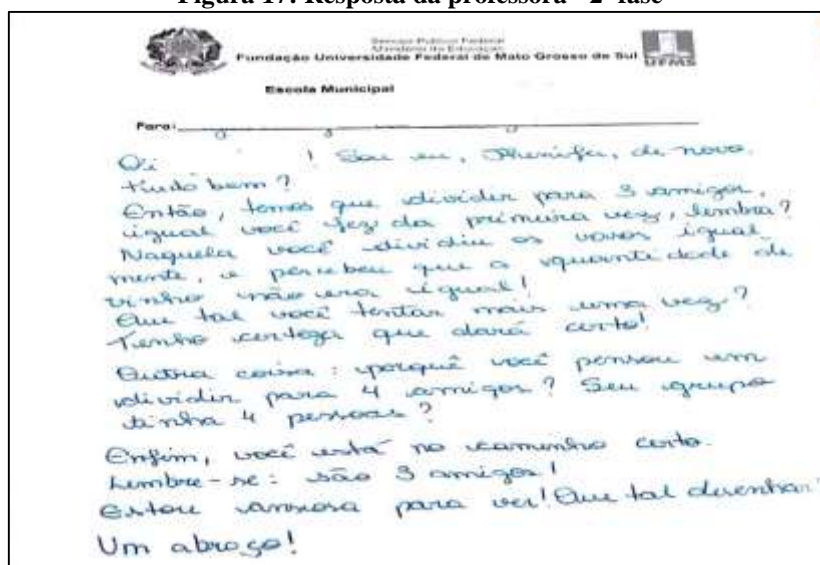 Figura 17: Resposta da professora – 2ª fase
Serviço Público Federal
Ministério da Educação
Fundação Universidade Federal de Mato Grosso do Sul
UFMS
Escola Municipal
Para:
Oi ! Sou eu, Jhenifer, de novo.
tudo bem?
Então, temos que dividir para 3 amigos,
igual você fez da primeira vez, lembra?
Naquela você dividiu os vasos igual
mente, e percebeu que a quantidade de
vinho não era igual!
Que tal você tentar mais uma vez?
Tenho certeza que dará certo!
Outra coisa: porquê você pensou em
dividir para 4 amigos? Seu grupo
tinha 4 pessoas?
Enfim, você está no caminho certo.
Lembre-se: são 3 amigos!
Estou ansiosa para ver! Que tal desenhar?
Um abraço!